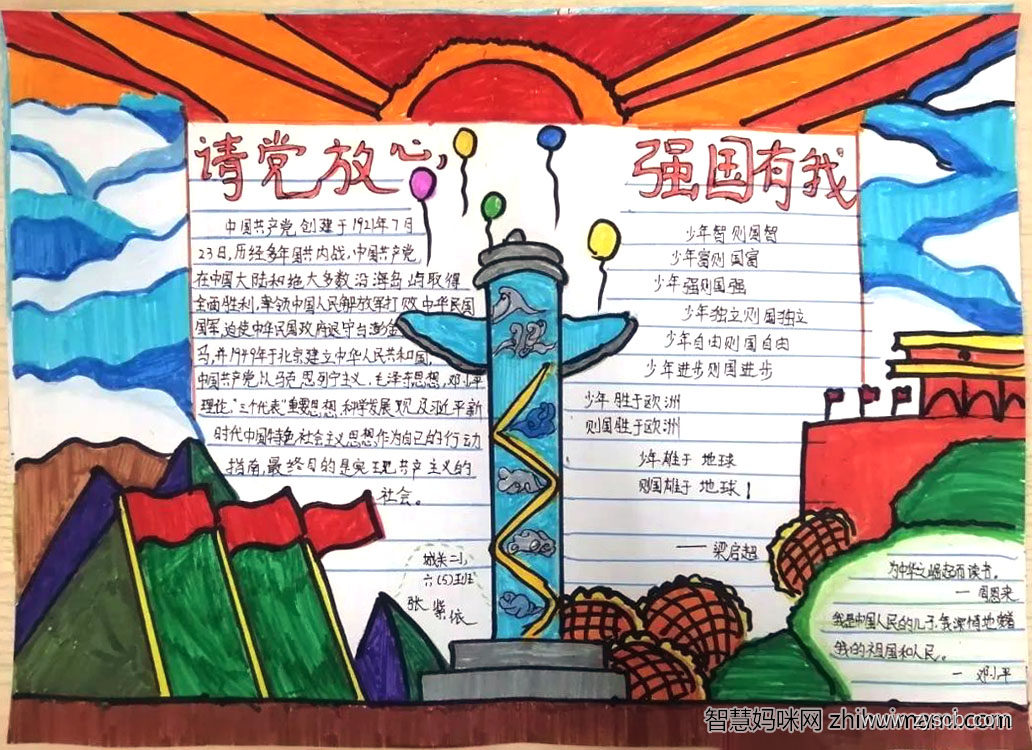 请党放心,
强国有我
中国共产党,创建于1921年7月
23日,历经多年国共内战,中国共产党
在中国大陆和绝大多数沿海岛屿取得
全面胜利,率领中国人民解放军打败中华民国
国军,迫使中华民国政府退守台澎金
马,并1949年于北京建立中华人民共和国,
中国共产党以马克思列宁主义、毛泽东思想,邓小平
理论,“三个代表”重要思想,科学发展观及习近平新
时代中国特色社会主义思想作为自己的行动
指南,最终目的是实现共产主义的
社会。
城关二小
六(5)班
张紫依
少年智则国智
少年富则国富
少年强则国强
少年独立则国独立
少年自由则国自由
少年进步则国进步
少年胜于欧洲
则国胜于欧洲
少年雄于地球
则国雄于地球!
——梁启超
为中华之崛起而读书。
—周恩来
我是中国人民的儿子,我深情地爱着
我的祖国和人民。
—邓小平
智慧妈咪网 zhihuimzyscb.com